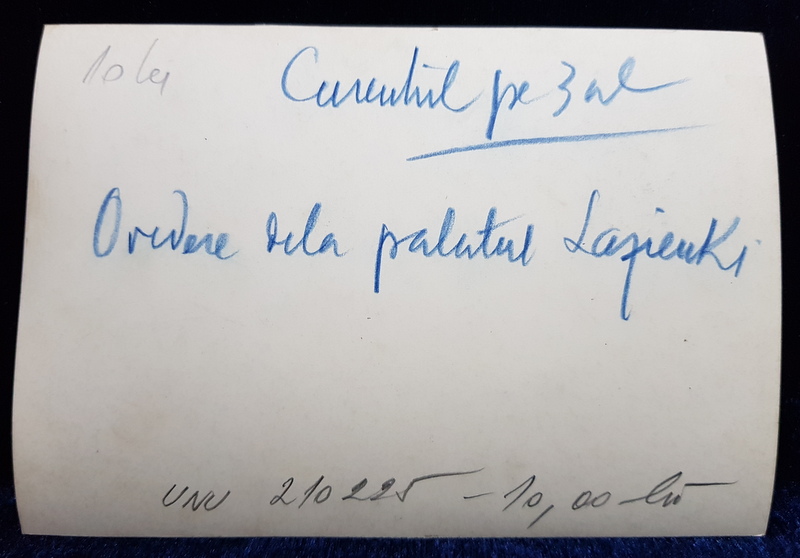 10 lei
Curentul pe 3 col
O vedere dela palatul Lazienki
UNU 210225 - 10,00 lei